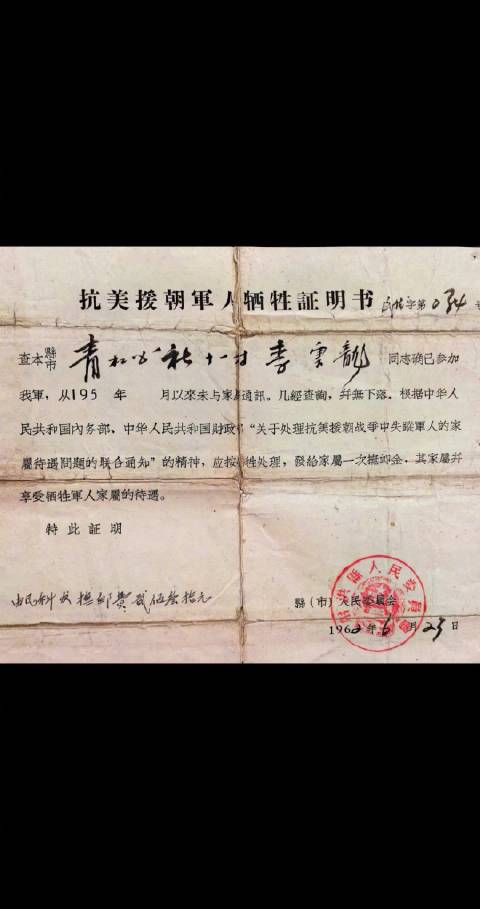 抗美援朝軍人牺牲証明书 字第034号
查本縣市青 公社十一村李雲龍同志确已参加
我軍，从195 年 月以來未与家屬通訊。几經查詢，幷無下落。根据中华人
民共和国內务部，中华人民共和国財政部“关于处理抗美援朝战爭中失蹤軍人的家
屬待遇問題的联合通知”的精神，应按牺牲处理，發給家屬一次撫卹金，其家屬幷
享受牺牲軍人家屬的待遇。
特此証明
由民科 撫卹費貳佰叁拾元
縣（市）人民委員会
1962年6月23日
洪縣人民委員會